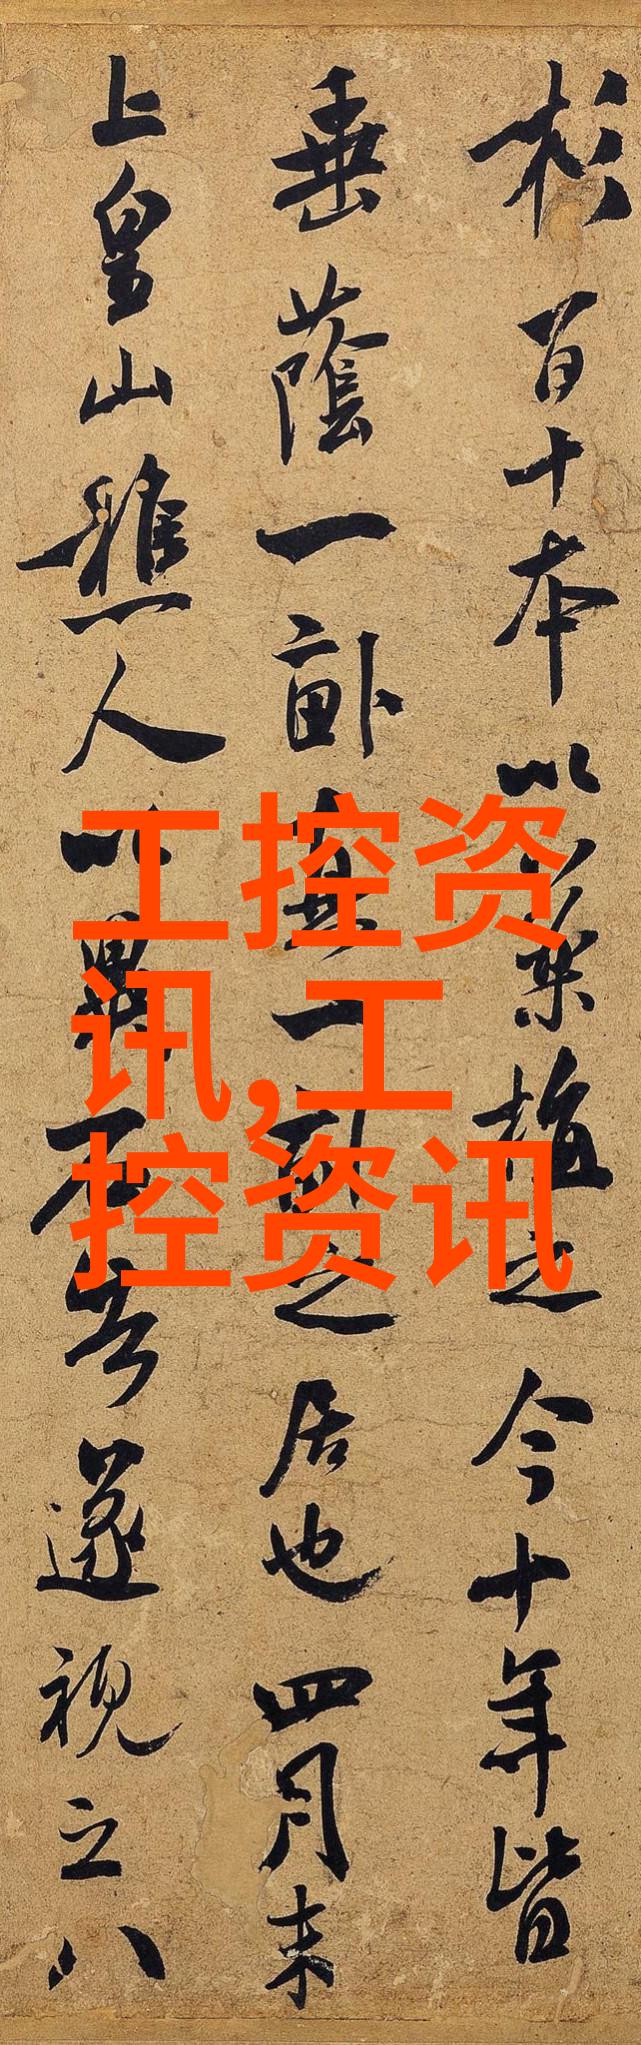 杉百十本以藥植之今十年皆
垂蔭一畝真一畝之居也四月末
上皇山樵人以異石告遂視之八
工控资
讯,工
控资讯